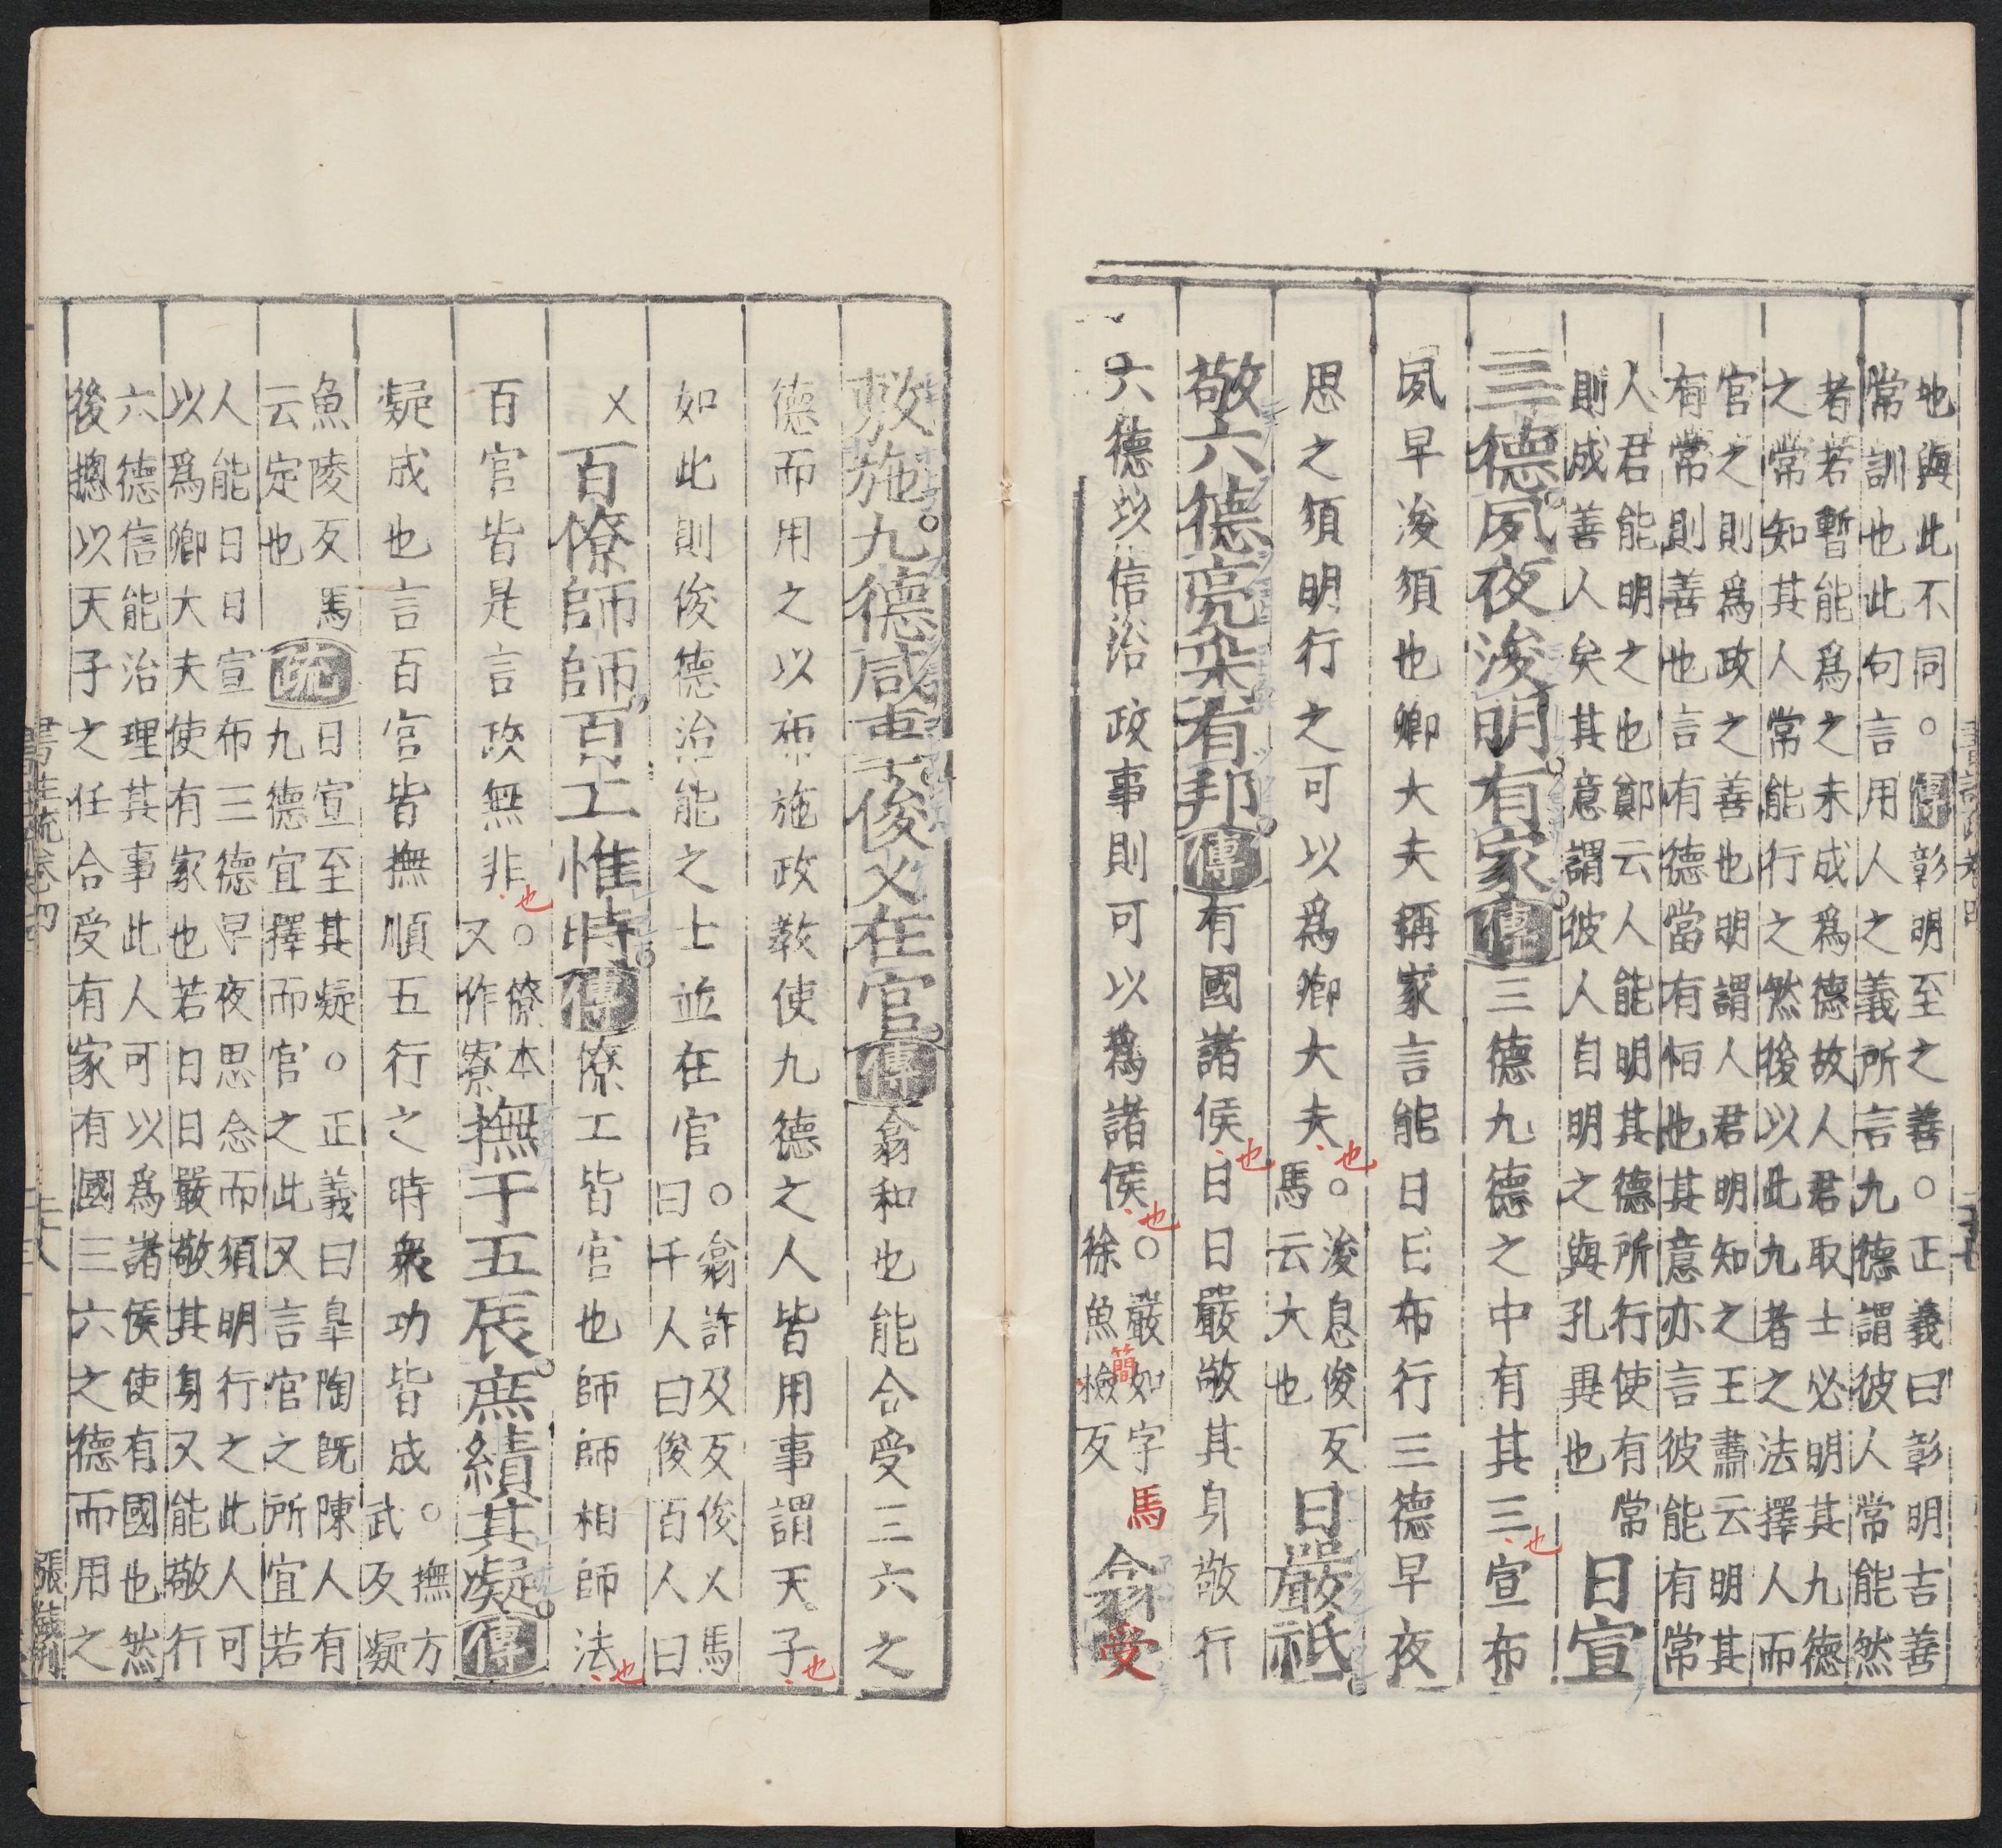 地與此不同。傳彰明至之善。○正義曰彰明吉善
常訓也此句言用人之義所言九德謂彼人常能然
者若暫能爲之未成爲德故人君取士必明其九德
之常知其人常能行之然後以此九者之法擇人而
官之則爲政之善也明謂人君明知之王肅云明其
有常則善也言有德當有恒也其意亦言彼能有常
人君能明之也鄭云人能明其德所行使有常
則成善人矣其意謂彼人自明之與孔異也
日宣
三德夙夜浚明有家傳三德九德之中有其三也宣布
夙早浚須也卿大夫稱家言能日日布行三德早夜
思之須明行之可以爲卿大夫也○浚息俊反
馬云大也
日嚴祗
敬六德亮采有邦傳有國諸侯也日日嚴敬其身敬行
六德以信治政事則可以爲諸侯也○嚴如字馬
徐魚簡檢反
翕受
敷施九德咸事俊乂在官傳翕和也能合受三六之
德而用之以布施政教使九德之人皆用事謂天子也
如此則俊德治能之士並在官○翕許及反俊乂馬
曰千人曰俊百人曰
乂百僚師師百工惟時傳僚工皆官也師師相師法也
百官皆是言政無非也○僚本
又作寮
撫于五辰庶績其凝傳
凝成也言百官皆撫順五行之時衆功皆成○撫方
武反凝
魚陵反馬
云定也
疏日宣至其凝○正義曰皐陶既陳人有
九德宜擇而官之此又言官之所宜若
人能日日宣布三德早夜思念而須明行之此人可
以爲卿大夫使有家也若日日嚴敬其身又能敬行
六德信能治理其事此人可以爲諸侯使有國也然
後摠以天子之任合受有家有國三六之德而用之